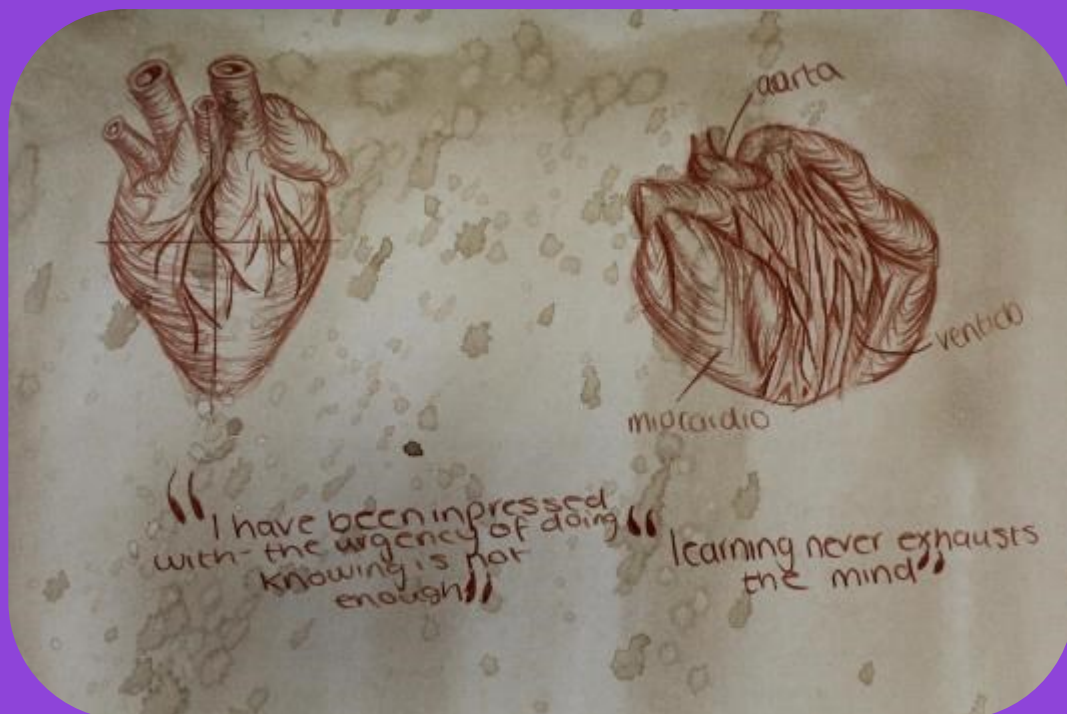 aarta
ventido
miocardio
“I have been inpressed
with-the urgency of doing
knowing is not
enough”
“learning never exhausts
the mind”